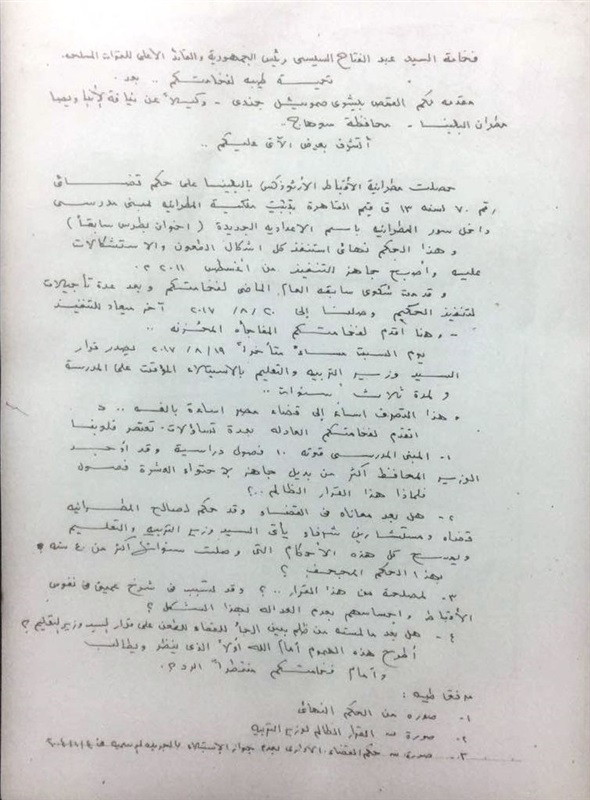 فخامة السيد عبد الفتاح السيسى رئيس الجمهورية والقائد الأعلى للقوات المسلحه
تحية طيبه لفخامتكم .. بعد
مقدمه لكم القمص بيشوى صموئيل جندى - وكيلاً عن نيافة الأنبا ويصا
مطران البلينا - محافظة سوهاج ..
أتشرف بعرض الآتى عليكم ..
حصلت مطرانية الأقباط الأرثوذكس بالبلينا على حكم قضائى
رقم ٧٠ لسنه ١٣ ق قيم القاهرة بتثبيت ملكية المطرانيه لمبنى مدرسى
داخل سور المطرانيه باسم الاعداديه الجديدة ( اخوان بطرس سابقاً )
وهذا الحكم نهائى استنفذ كل اشكال الطعون والاستشكالات
عليه وأصبح جاهز التنفيذ من أغسطس ٢٠١١ م .
وقدمت شكوى سابقه العام الماضى لفخامتكم وبعد عدة تأجيلات
لتنفيذ الحكم وصلنا إلى ٢٠ / ٨ / ٢٠١٧ آخر ميعاد للتنفيذ
- وهنا أقدم لفخامتكم المفاجأه المحزنه ..
يوم السبت مساءً متأخراً ١٩ / ٨ / ٢٠١٧ يصدر قرار
السيد وزير التربيه والتعليم بالاستيلاء المؤقت على المدرسة
ولمدة ثلاث سنوات ..
هذا التصرف اساء إلى قضاء مصر اساءة بالغه ..
اتقدم لفخامتكم العادله بعدة تساؤلات تعتصر قلوبنا
١- المبنى المدرسى قوته ١٠ فصول دراسية وقد أوجد
الوزير المحافظ أكثر من بديل جاهز لاحتواء العشرة فصول
فلماذا هذا القرار الظالم ..؟
٢- هل بعد معاناه فى القضاء وقد حكم لصالح المطرانيه
قضاه ومستشارين شرفاء يأتى السيد وزير التربيه والتعليم
كل هذه الأحكام التى وصلت سنواتها أكثر من ٤٠ سنه
بهذا الحكم المجحف ؟
٣- لمصلحة من هذا القرار .. ؟ وقد تسبب فى شرخ عميق فى نفوس
الأقباط واحساسهم بعدم العداله لهذا الشكل ؟
٤- هل بعد ما لمسته من ظلم يبقى الجأ للقضاء للطعن على قرار السيد وزير التعليم ؟
أطرح هذه الهموم أمام الله أولاً الذى ينظر ويطالب
وأمام فخامتكم منتظراً الرد .
مرفق طيه :
١- صوره من الحكم النهائى
٢- صورة من القرار الظالم لوزير التربيه
٣- صورة من حكم القضاء الادارى بعدم جواز الإستيلاء